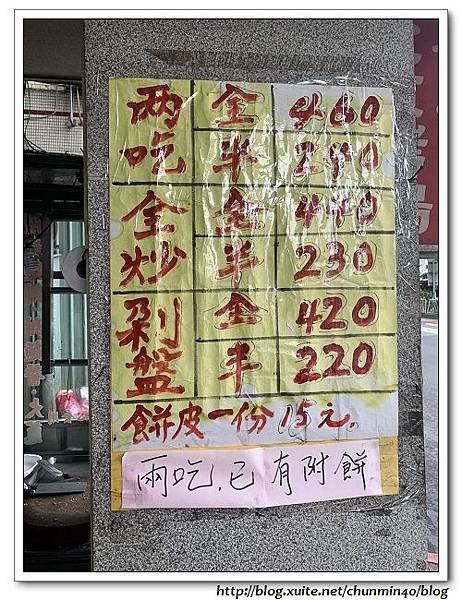 两吃 全 460
半 240
全炒 全 440
半 230
剁盤 全 420
半 220
餅皮一份15元.
兩吃.已有附餅
http://blog.xuite.net/chunmin40/blog